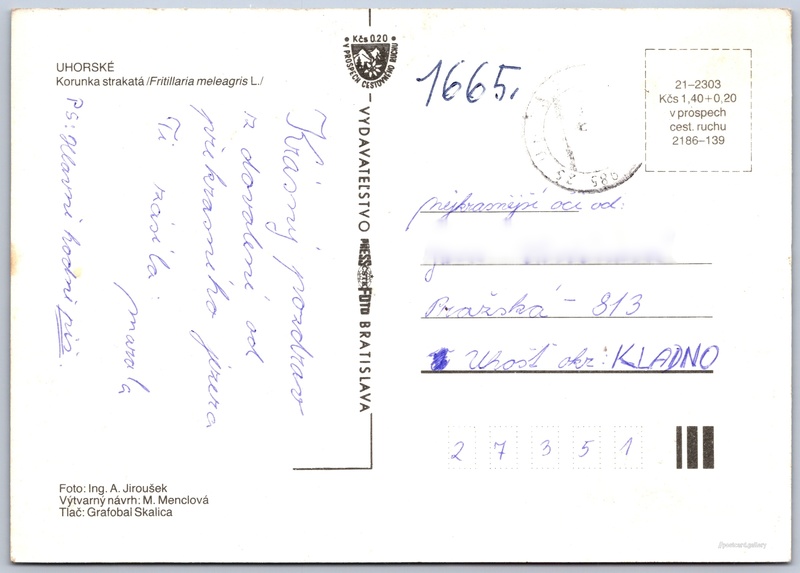 UHORSKÉ
Korunka strakatá /Fritillaria meleagris L./
Kčs 0.20
V PROSPECH CESTOVNÉHO RUCHU
VYDAVATEĽSTVO PRESSFOTO BRATISLAVA
Krásný pozdrav
z dovolení od
překrásného jezera
Ti zasílá
PS: Hlavní hodně piš.
1665,
21–2303
Kčs 1,40+0,20
v prospech
cest. ruchu
2186–139
nejkrasnější oci od:
Pražská - 813
Unošť okr: KLADNO
2 7 3 5 1
Foto: Ing. A. Jiroušek
Výtvarný návrh: M. Menclová
Tlač: Grafobal Skalica
postcard.gallery